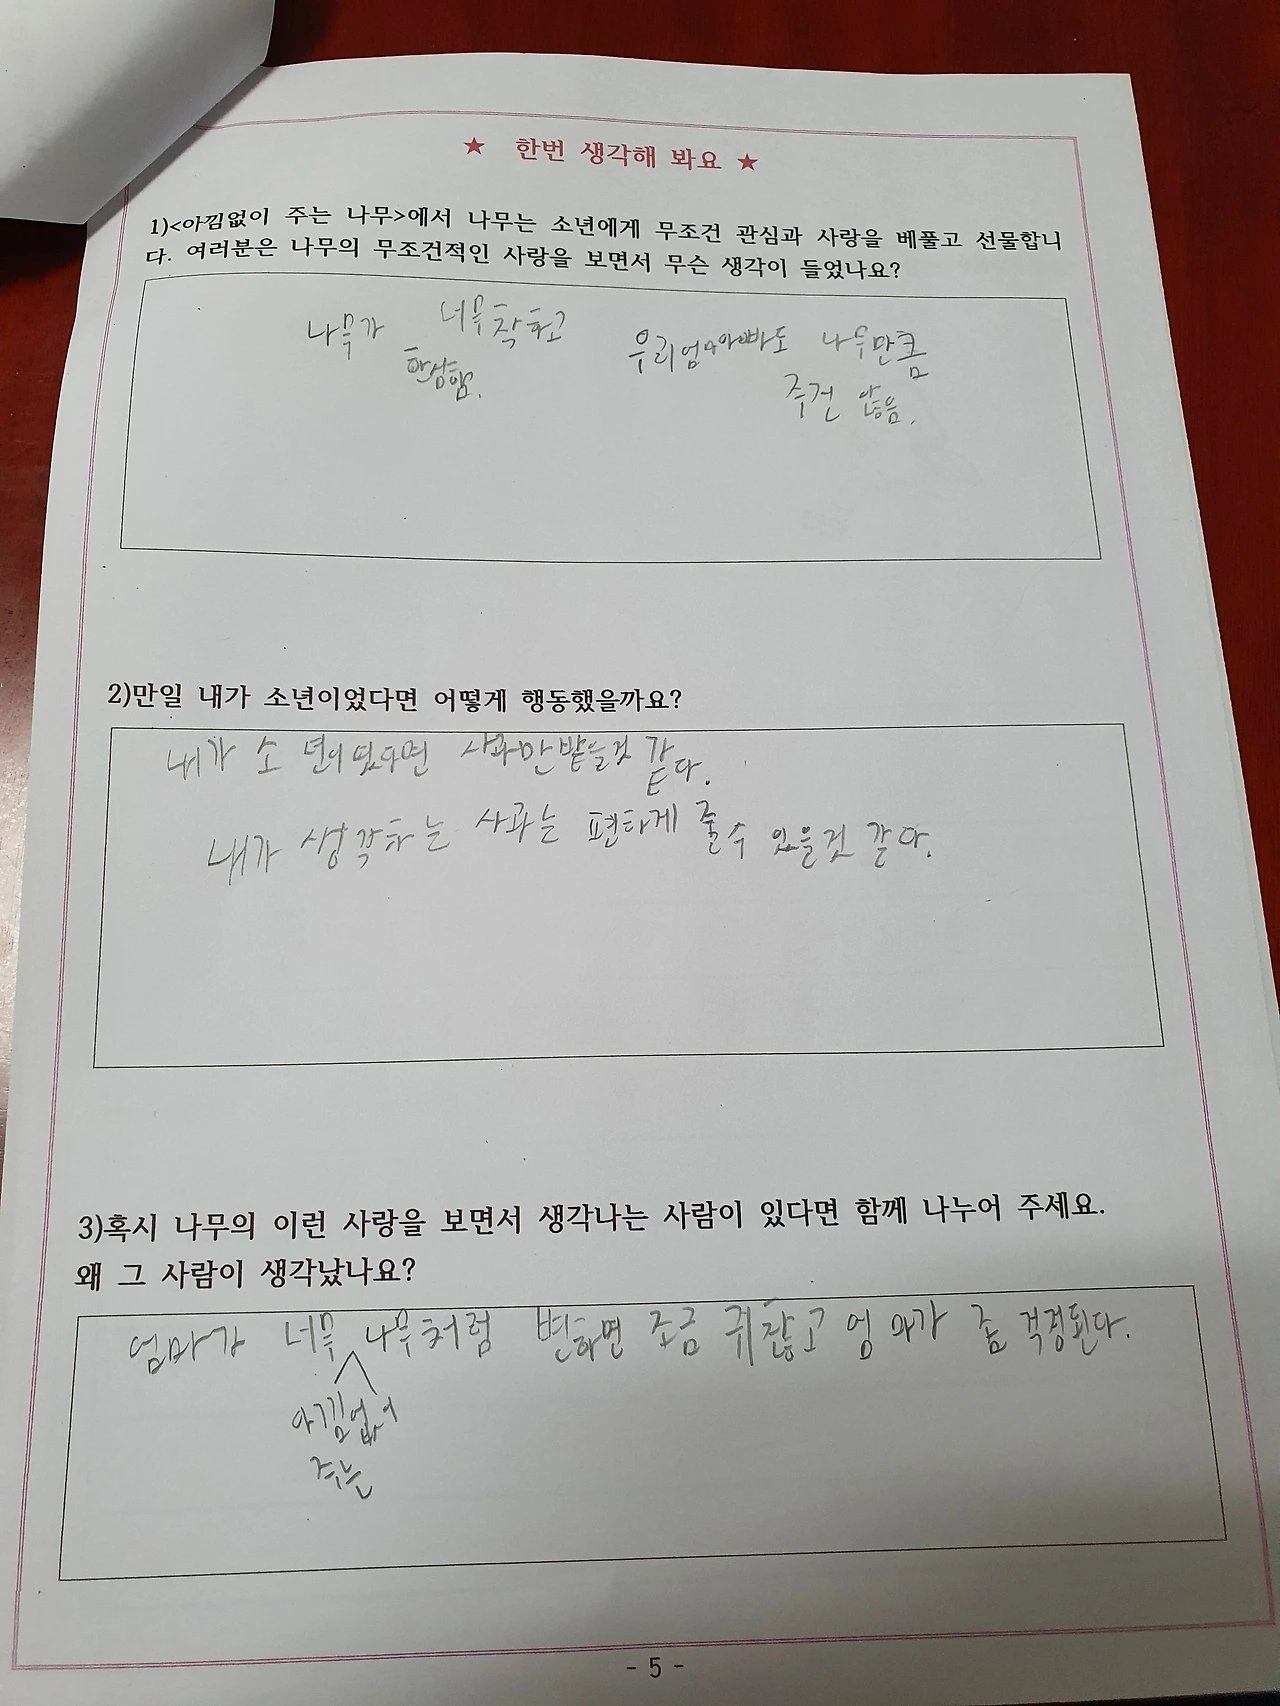 ★ 한번 생각해 봐요 ★
1)<아낌없이 주는 나무>에서 나무는 소년에게 무조건 관심과 사랑을 베풀고 선물합니
다. 여러분은 나무의 무조건적인 사랑을 보면서 무슨 생각이 들었나요?
나무가 너무착하고
한심함.
우리엄마아빠도 나무만큼
주진 않음.
2)만일 내가 소년이었다면 어떻게 행동했을까요?
내가 소년이였다면 사과만받을것 같다.
내가 생각하는 사과는 편하게 줄수 있을것 같다.
3)혹시 나무의 이런 사랑을 보면서 생각나는 사람이 있다면 함께 나누어 주세요.
왜 그 사람이 생각났나요?
엄마가 너무 나무처럼 변하면 조금 귀찮고 엄마가 좀 걱정된다.
아낌없이
주는
- 5 -